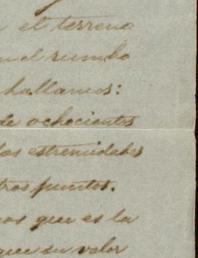 el terreno
n el rumbo
hallamos:
de ochocientos
los estremidades
tros puntos.
os que es la
que su valor